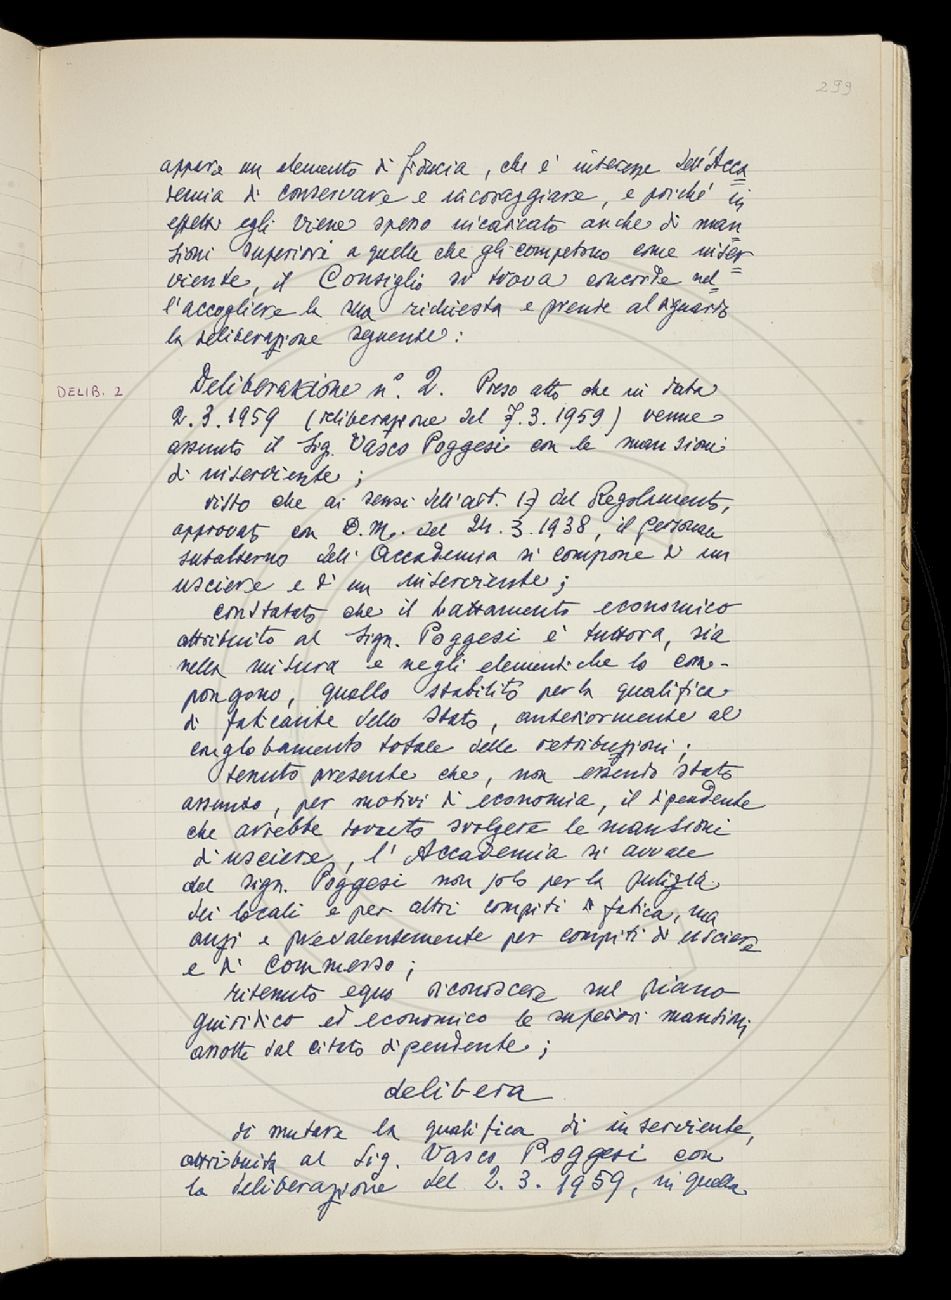 299
appare un elemento di fiducia, che è interesse dell'Acca=
demia di conservare e incoraggiare, e poiché in
effetti egli viene spesso incaricato anche di man=
sioni superiori a quelle che gli competono come inser=
viente, il Consiglio si trova concorde nel=
l'accogliere la sua richiesta e prende al riguardo
la deliberazione seguente:
DELIB. 2
Deliberazione n° 2. Preso atto che in data
2.3.1959 (deliberazione del 7.3.1959) venne
assunto il Sig. Vasco Poggesi con le mansioni
di inserviente;
visto che ai sensi dell'art. 17 del Regolamento,
approvato con D.M. del 24.3.1938, il personale
subalterno dell'Accademia si compone di un
usciere e di un inserviente;
constatato che il trattamento economico
attribuito al Sign. Poggesi è tuttora, sia
nella misura e negli elementi che lo com-
pongono, quello stabilito per la qualifica
di faticante dello Stato, anteriormente al
conglobamento totale delle retribuzioni;
tenuto presente che, non essendo stato
assunto, per motivi di economia, il dipendente
che avrebbe dovuto svolgere le mansioni
di usciere, l'Accademia si avvale
del Sign. Poggesi non solo per la pulizia
dei locali e per altri compiti di fatica, ma
anzi e prevalentemente per compiti di usciere
e di commesso;
ritenuto equo riconoscere sul piano
giuridico ed economico le superiori mansioni
assolte dal citato dipendente;
delibera
di mutare la qualifica di inserviente,
attribuita al Sig. Vasco Poggesi con
la deliberazione del 2.3.1959, in quella